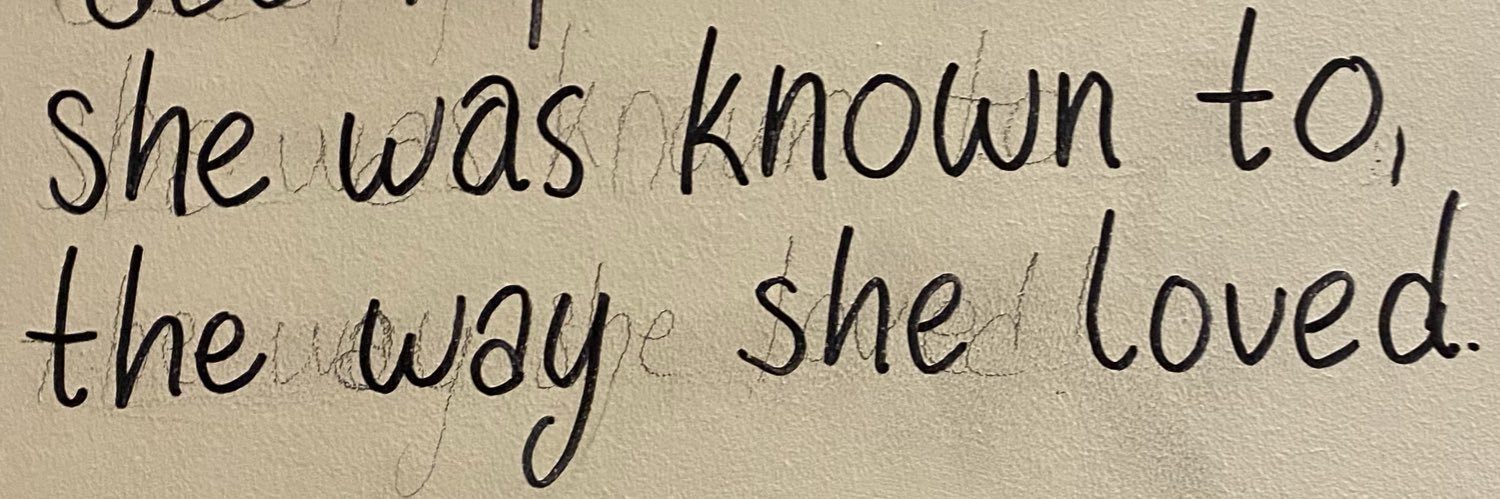 she was known to,
the way she loved.